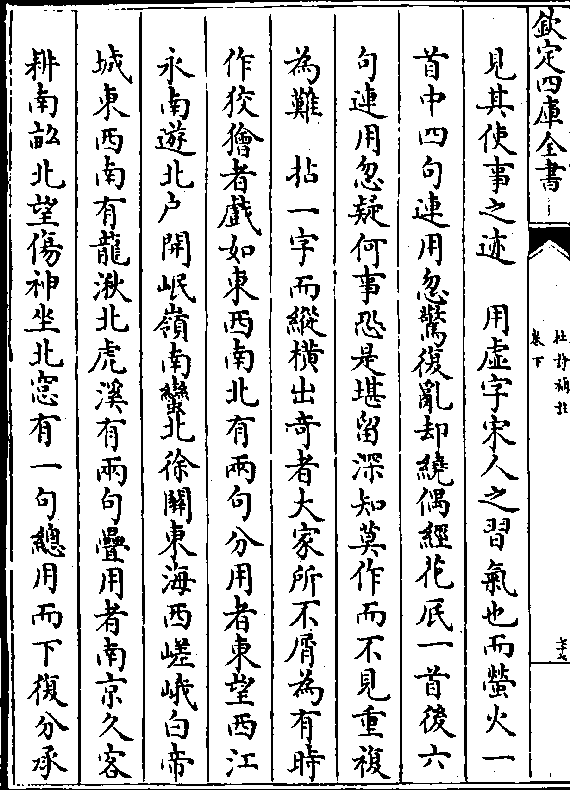 欽定四庫全書
杜詩攟
卷下
見其使事之迹　用虛字宋人之習氣也而螢火一
首中四句連用忽驚復亂却繞偶經花底一首後六
句連用忽疑何事恐是堪留深知莫作而不見重複
為難　拈一字而縱橫出奇者大家所不屑為有時
作狡獪者戲如東西南北有兩句分用者東望西江
永南遊北户開岷嶺南蠻北徐關東海西嵯峨白帝
城東西南有龍湫北虎溪有兩句疊用者南京久客
耕南畝北望傷神坐北窓有一句總用而下復分承